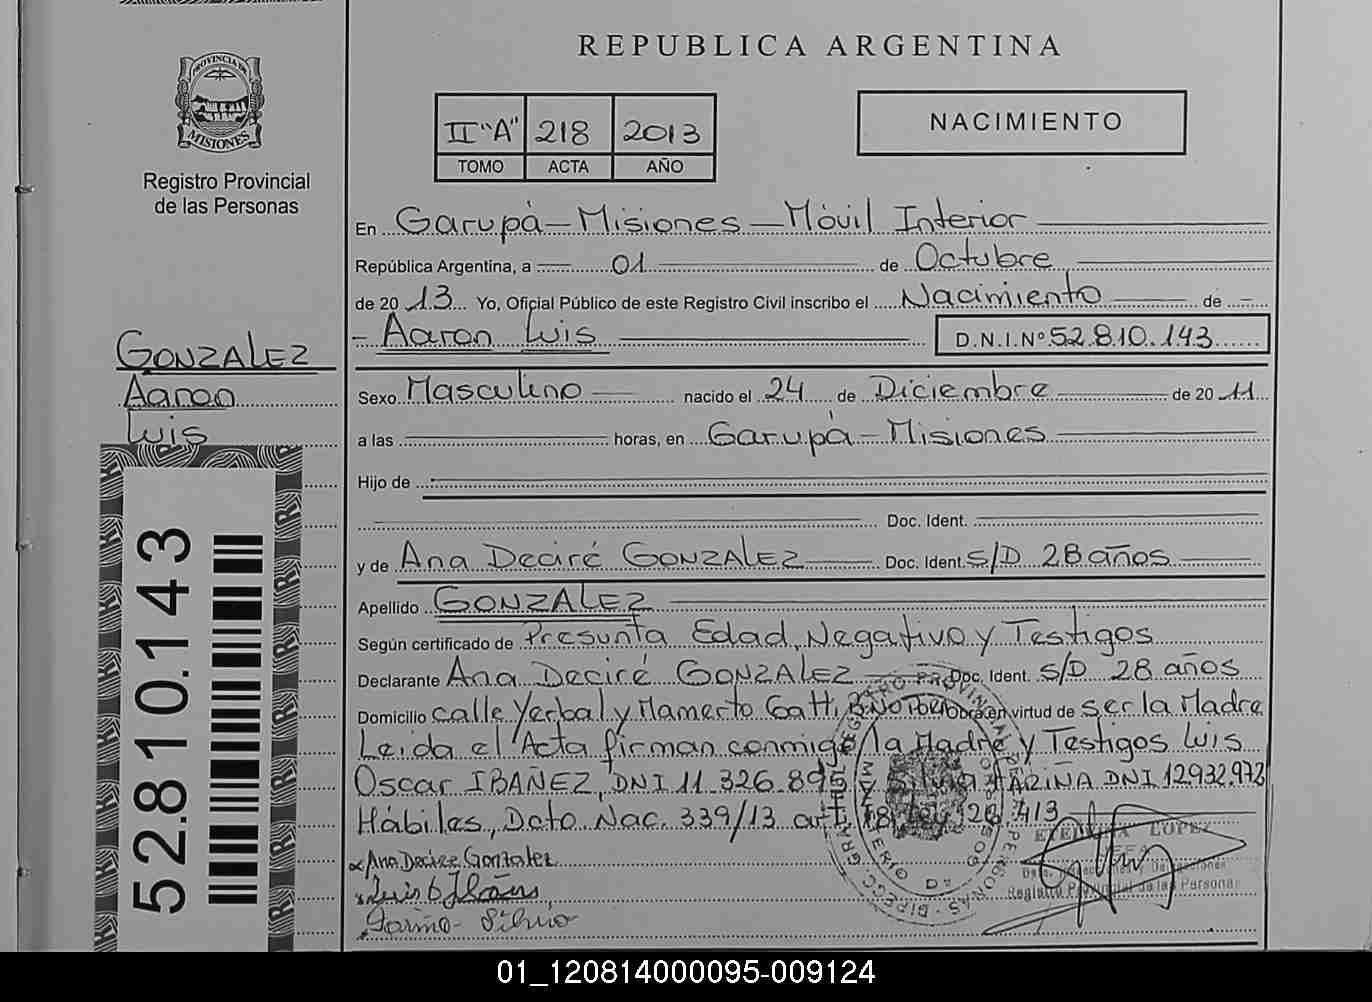 REPUBLICA ARGENTINA
PROVINCIA DE
MISIONES
Registro Provincial
de las Personas
II "A" 218 2013
TOMO ACTA AÑO
NACIMIENTO
En Garupá - Misiones - Móvil Interior
República Argentina, a 01 de Octubre
de 2013 Yo, Oficial Público de este Registro Civil inscribo el Nacimiento de
Aaron Luis D.N.I. Nº 52.810.143
GONZALEZ
Aaron
Luis
52.810.143
Sexo Masculino nacido el 24 de Diciembre de 2011
a las horas, en Garupá - Misiones
Hijo de
Doc. Ident.
y de Ana Deciré GONZALEZ Doc. Ident. S/D 28 años
Apellido GONZALEZ
Según certificado de Presunta Edad, Negativo y Testigos
Declarante Ana Deciré GONZALEZ Doc. Ident. S/D 28 años
Domicilio calle Yerbal y Mamerto Gatti, Obra en virtud de ser la Madre
Leida el Acta firman conmigo la Madre y Testigos Luis
Oscar IBAÑEZ, DNI 11.326.895 y FARIÑA DNI 12932.972
Hábiles, Dcto Nac. 339/13 art 18 Ley 26.413
Ana Decire Gonzalez
Luis O Ibañes
Fariña - Silvia
LOPEZ
JEFA
Registro Provincial de las Personas
01_120814000095-009124